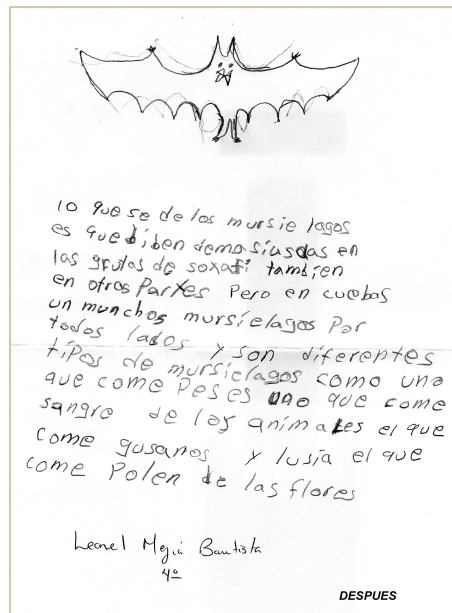 lo que se de los mursie lagos
es que biben demasiusdas en
las grutas de soxafi tambien
en otros Partes Pero en cuebas
un munchos mursielagos Por
todos lados y son diferentes
tipos de mursielagos como uno
que come Peses uno que come
sangre de los animales el que
come gusanos y lusia el que
come Polen de las flores
Leonel Mejia Bautista
4º
DESPUES